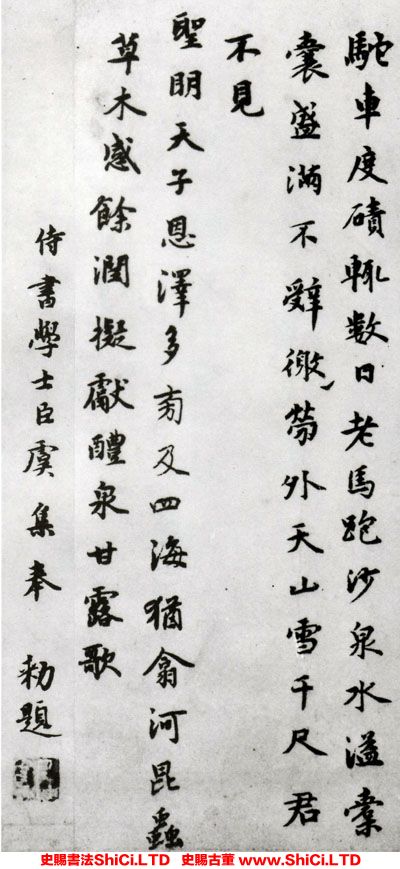 駝車度磧輒數日老馬跑沙泉水溢橐
囊盛滿不辭微勞外天山雪千尺君
不見
聖明天子恩澤多旁及四海猶翕河昆蟲
草木感餘潤擬獻醴泉甘露歌
侍書學士臣虞集奉 勑題
史賜書法ShiCi.LTD 史賜古董 www.ShiCi.LTD